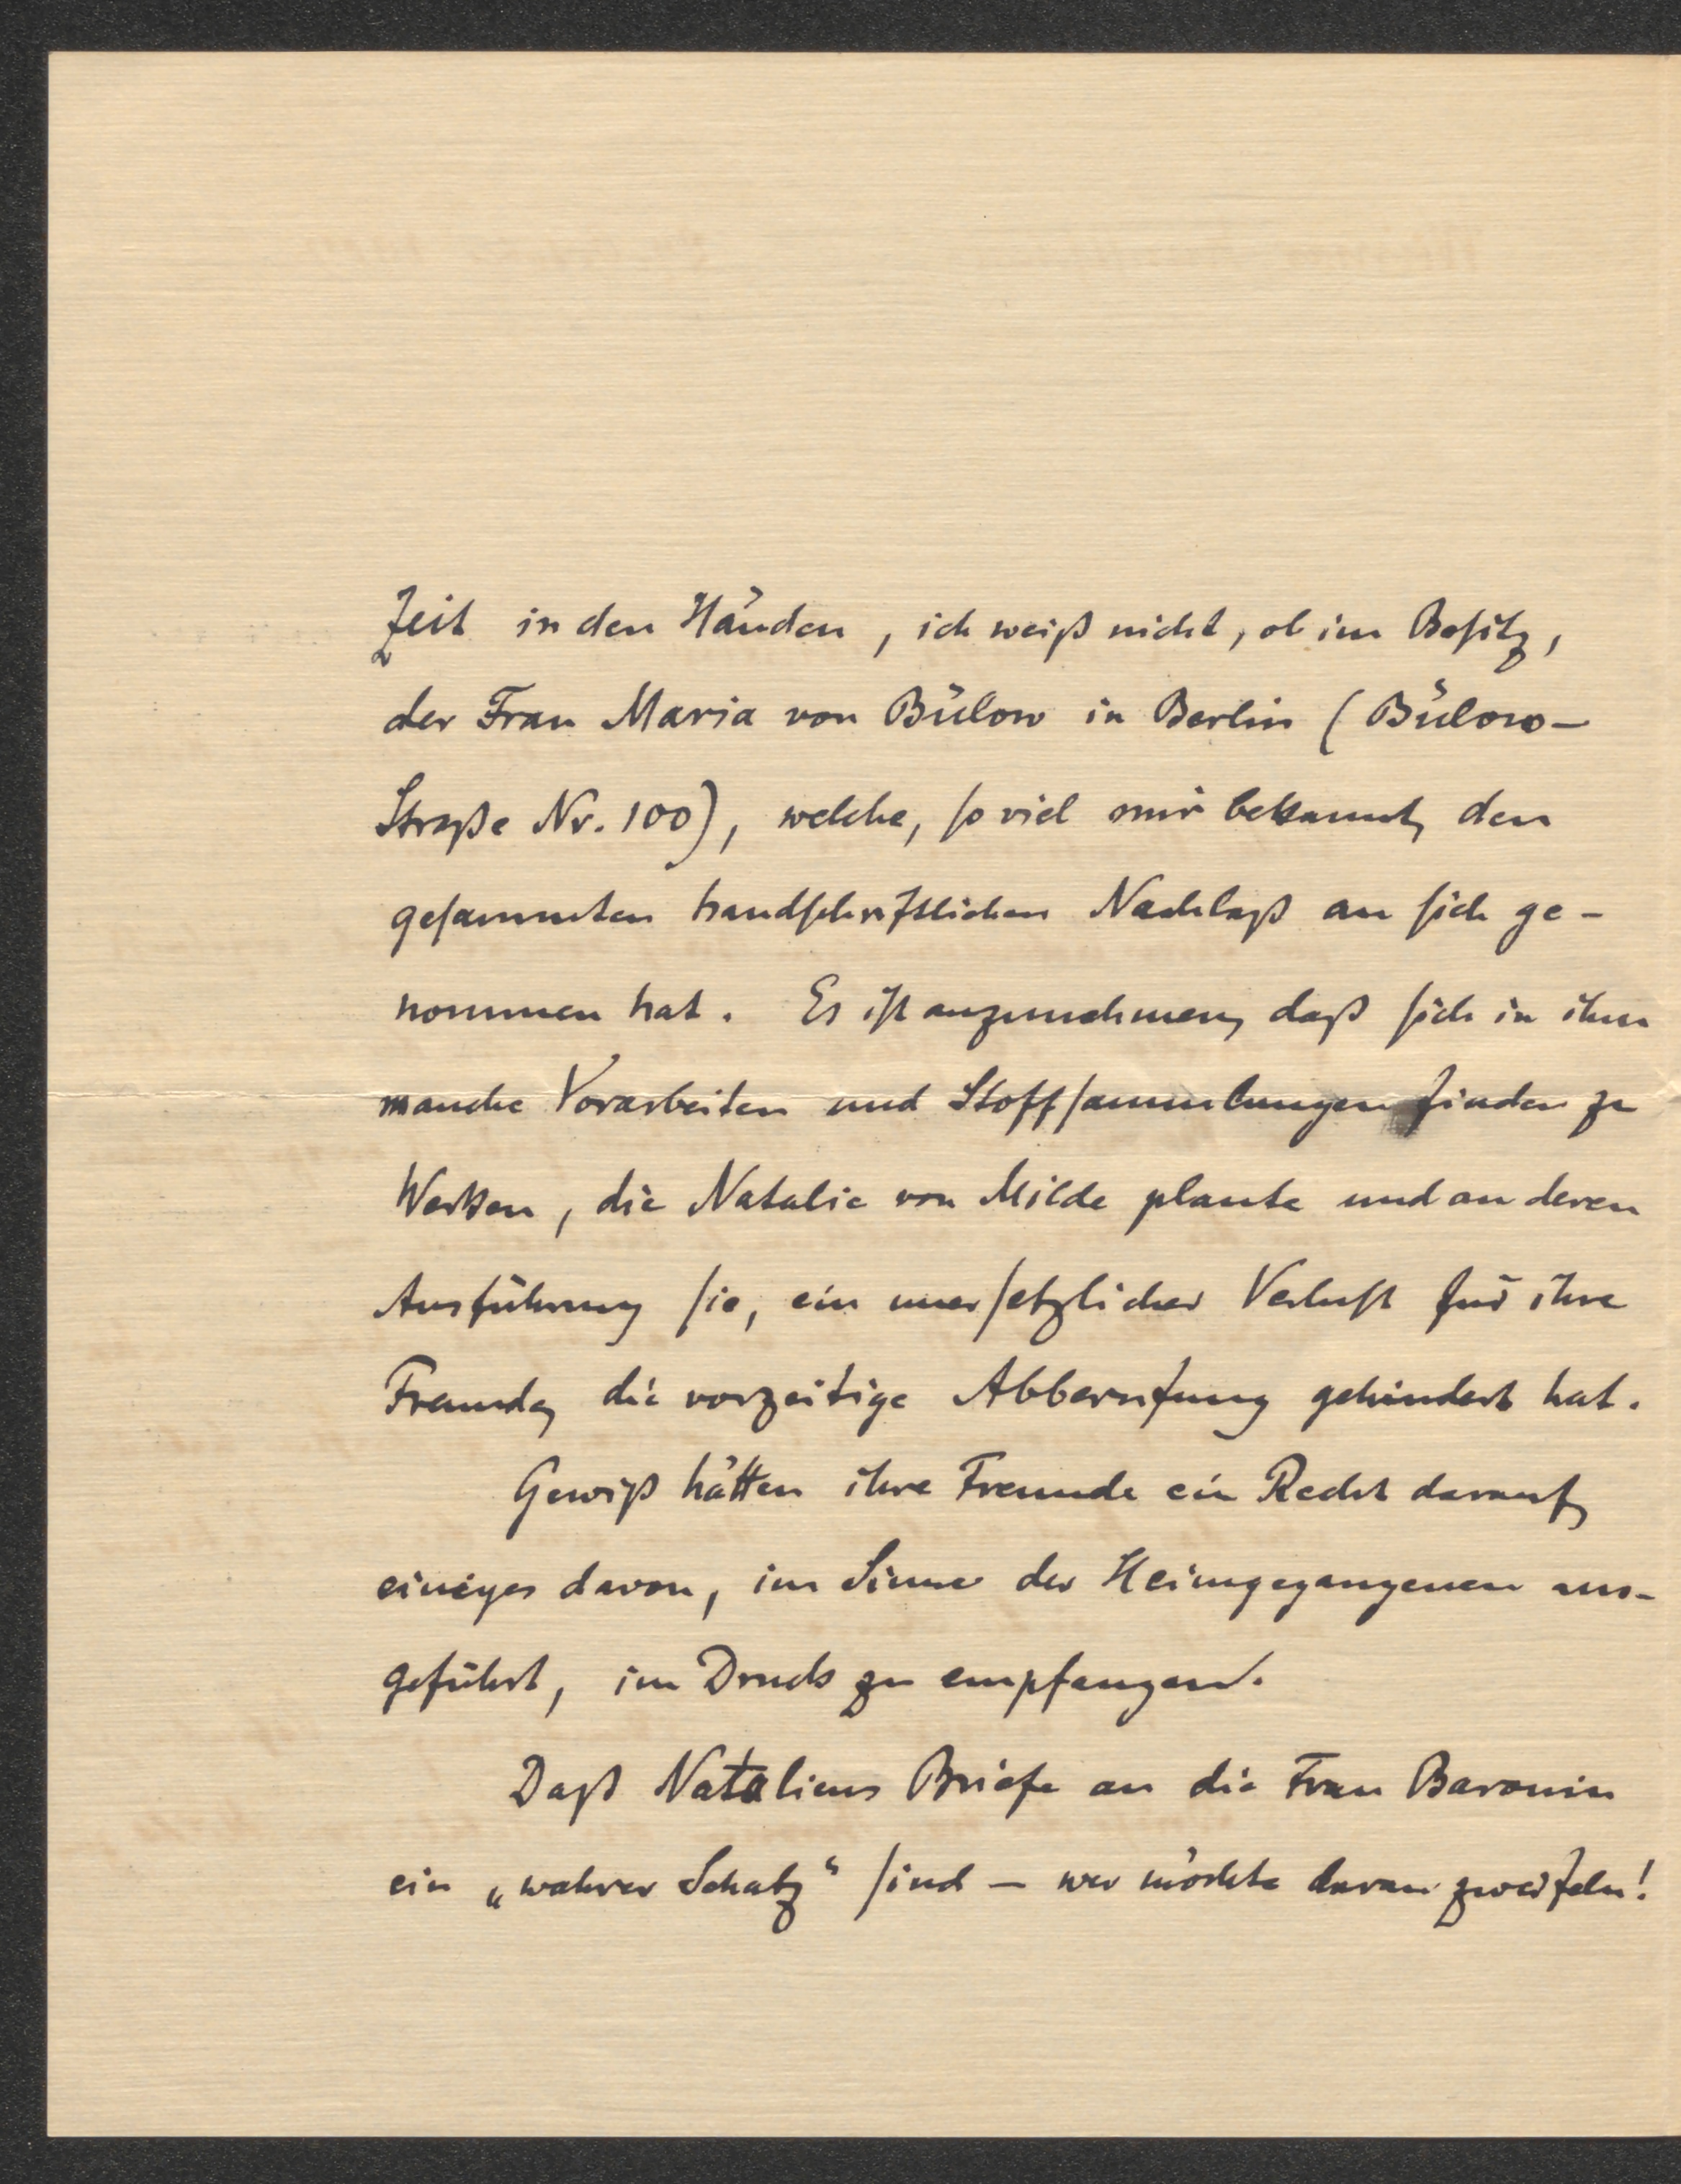 Zeit in den Händen, ich weiß nicht, ob im Besitz,
der Frau Maria von Bülow in Berlin (Bülow-
Straße Nr. 100), welche, so viel mir bekannt, den
gesammten handschriftlichen Nachlaß an sich ge-
nommen hat. Es ist anzunehmen, daß sich in ihm
manche Vorarbeiten und Stoffsammlungen finden zu
Werken, die Natalie von Milde plante und an deren
Ausführung sie, ein unersetzlicher Verlust für ihre
Freunde, die vorzeitige Abberufung gehindert hat.
Gewiß hätten ihre Freunde ein Recht darauf,
einiges davon, im Sinne der Heimgegangenen aus-
geführt, im Druck zu empfangen.
Daß Nataliens Briefe an die Frau Baronin
ein „wahrer Schatz“ sind – wer möchte daran zweifeln!